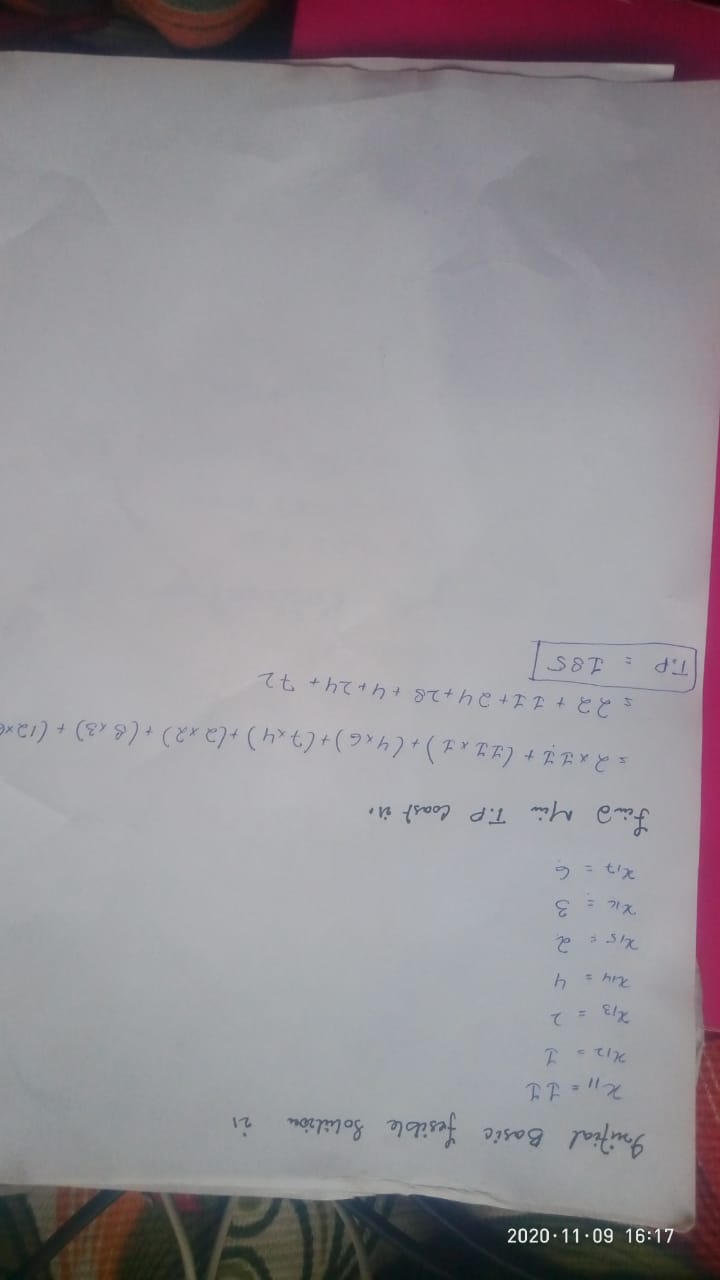 Initial Basic fesible Solution is
x11 = 11
x12 = 1
x13 = 2
x14 = 4
x15 = 2
x16 = 3
x17 = 6
find Min T.P Coast is.
= 2×11 + (11×1) + (4×6) + (7×4) + (2×2) + (8×3) + (12×6
= 22 + 11 + 24 + 28 + 4 + 24 + 72
T.P = 185
2020·11·09 16:17